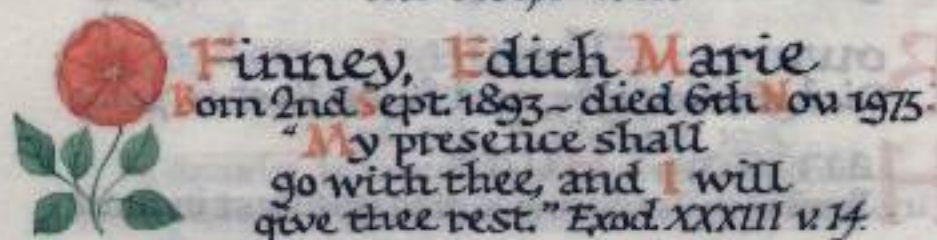 Finney, Edith Marie
Born 2nd Sept. 1893 – died 6th Nov. 1975.
"My presence shall
go with thee, and I will
give thee rest." Exod. XXXIII v. 14.